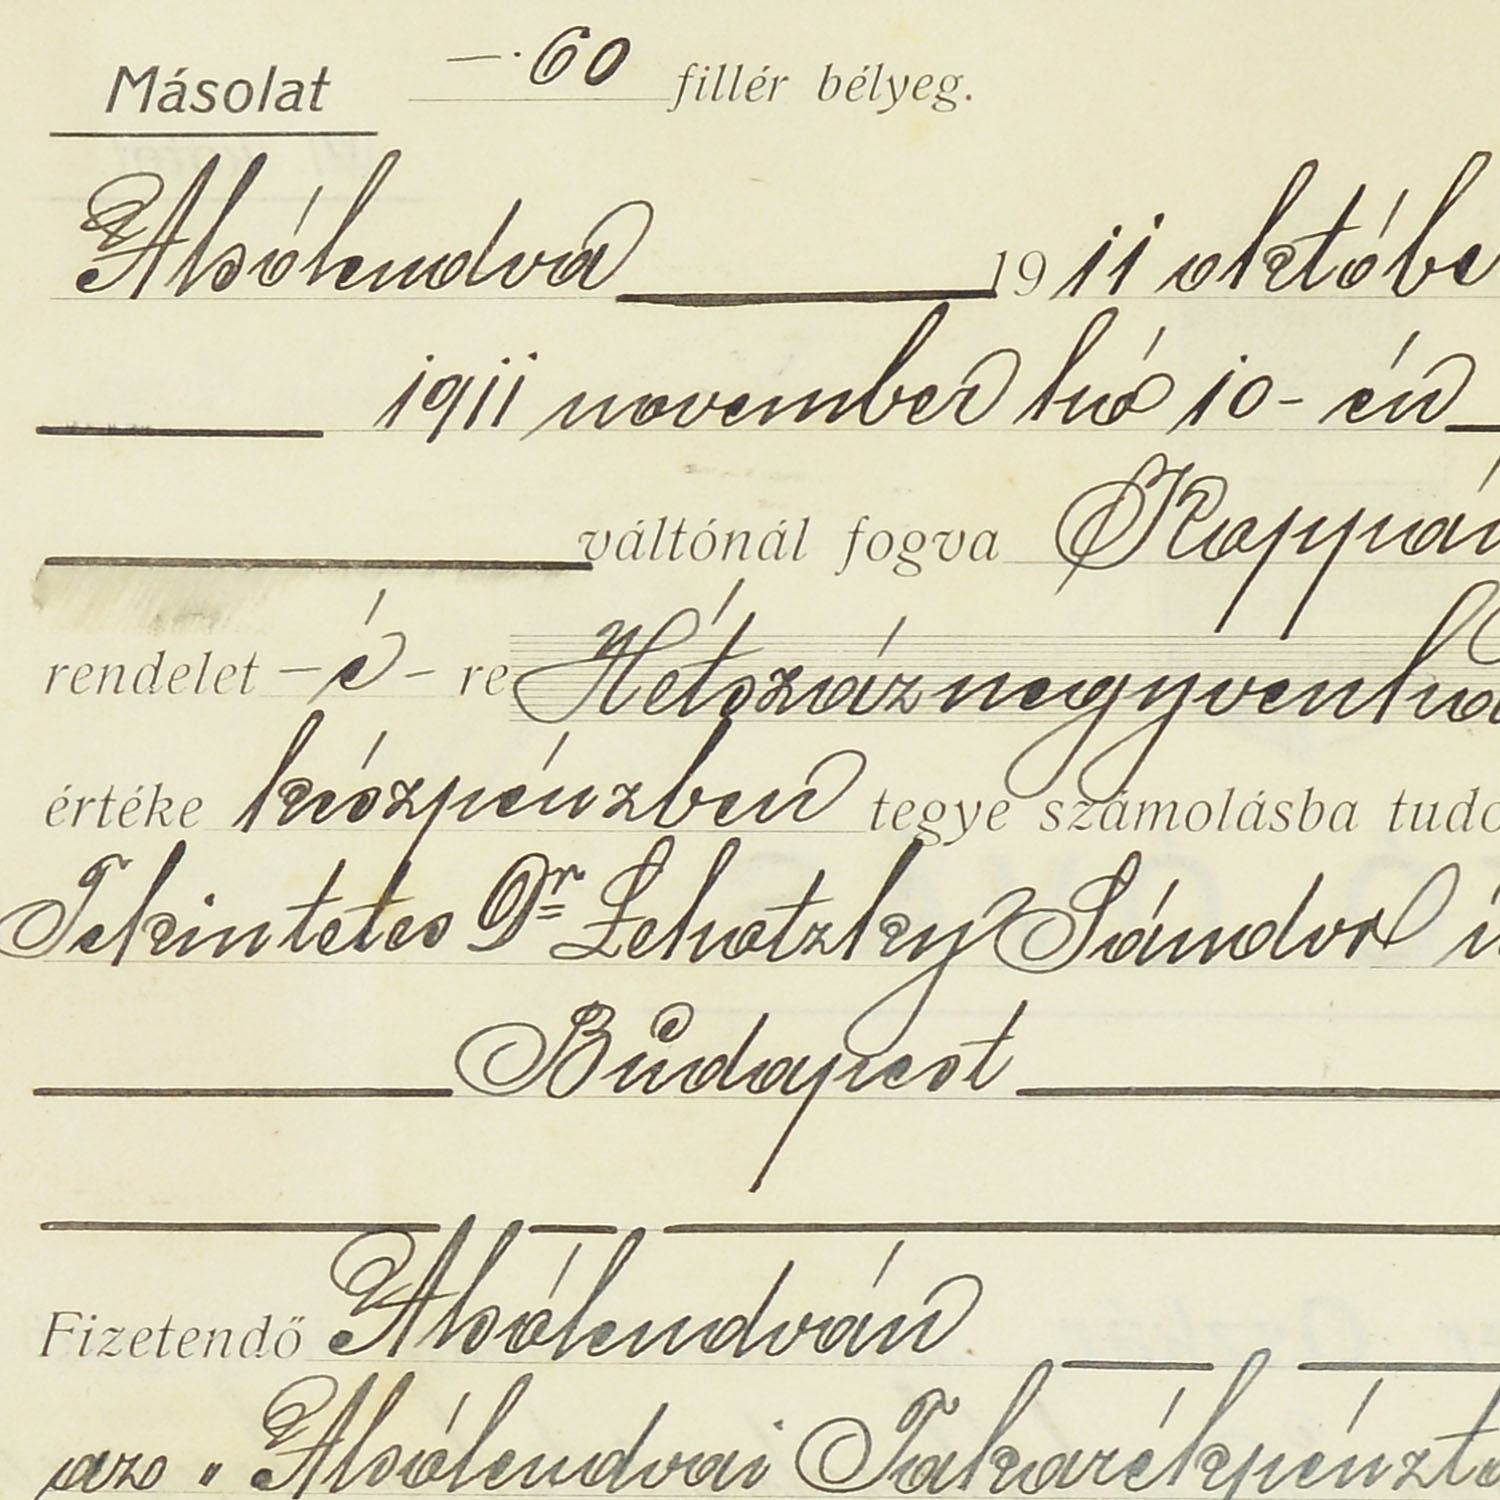 Másolat —·60 fillér bélyeg.
Alsólendva 1911 októbe
1911 november hó 10-én
váltónál fogva Koppán
rendelet – é – re Hétszáznegyvenha
értéke készpénzben tegye számolásba tudo
Tekintetes Dr Lehotzky Sándor ú
Budapest
Fizetendő Alsólendván
az „Alsólendvai Takarékpénztá